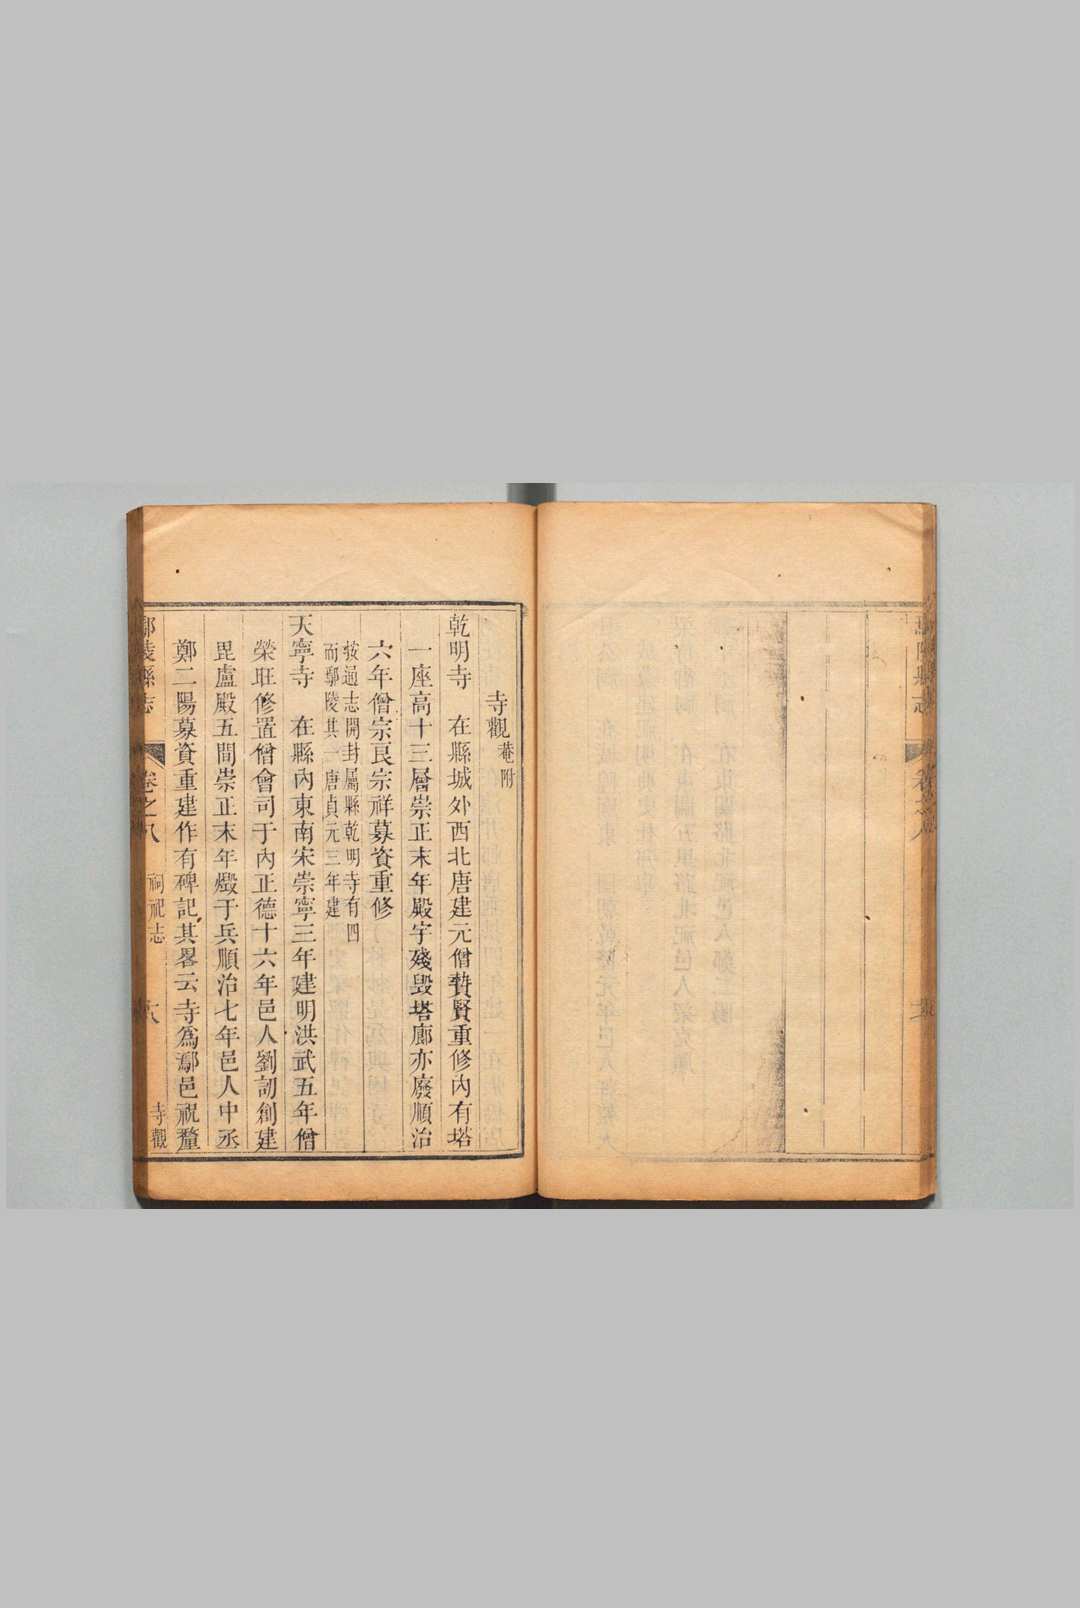 寺觀菴附
乾明寺　在縣城外西北唐建元僧贊賢重修內有塔
一座高十三層崇正末年殿宇殘毀塔廊亦廢順治
六年僧宗良宗祥募資重修
按通志開封屬縣乾明寺有四
而鄢陵其一唐貞元三年建
天寧寺　在縣內東南宋崇寧三年建明洪武五年僧
榮旺修置僧會司于內正德十六年邑人劉訒創建
毘盧殿五間崇正末年燬于兵順治七年邑人中丞
鄭二陽募資重建作有碑記其畧云寺爲鄢邑祝釐
鄢陵縣志　卷之八　祠祀志　　寺觀